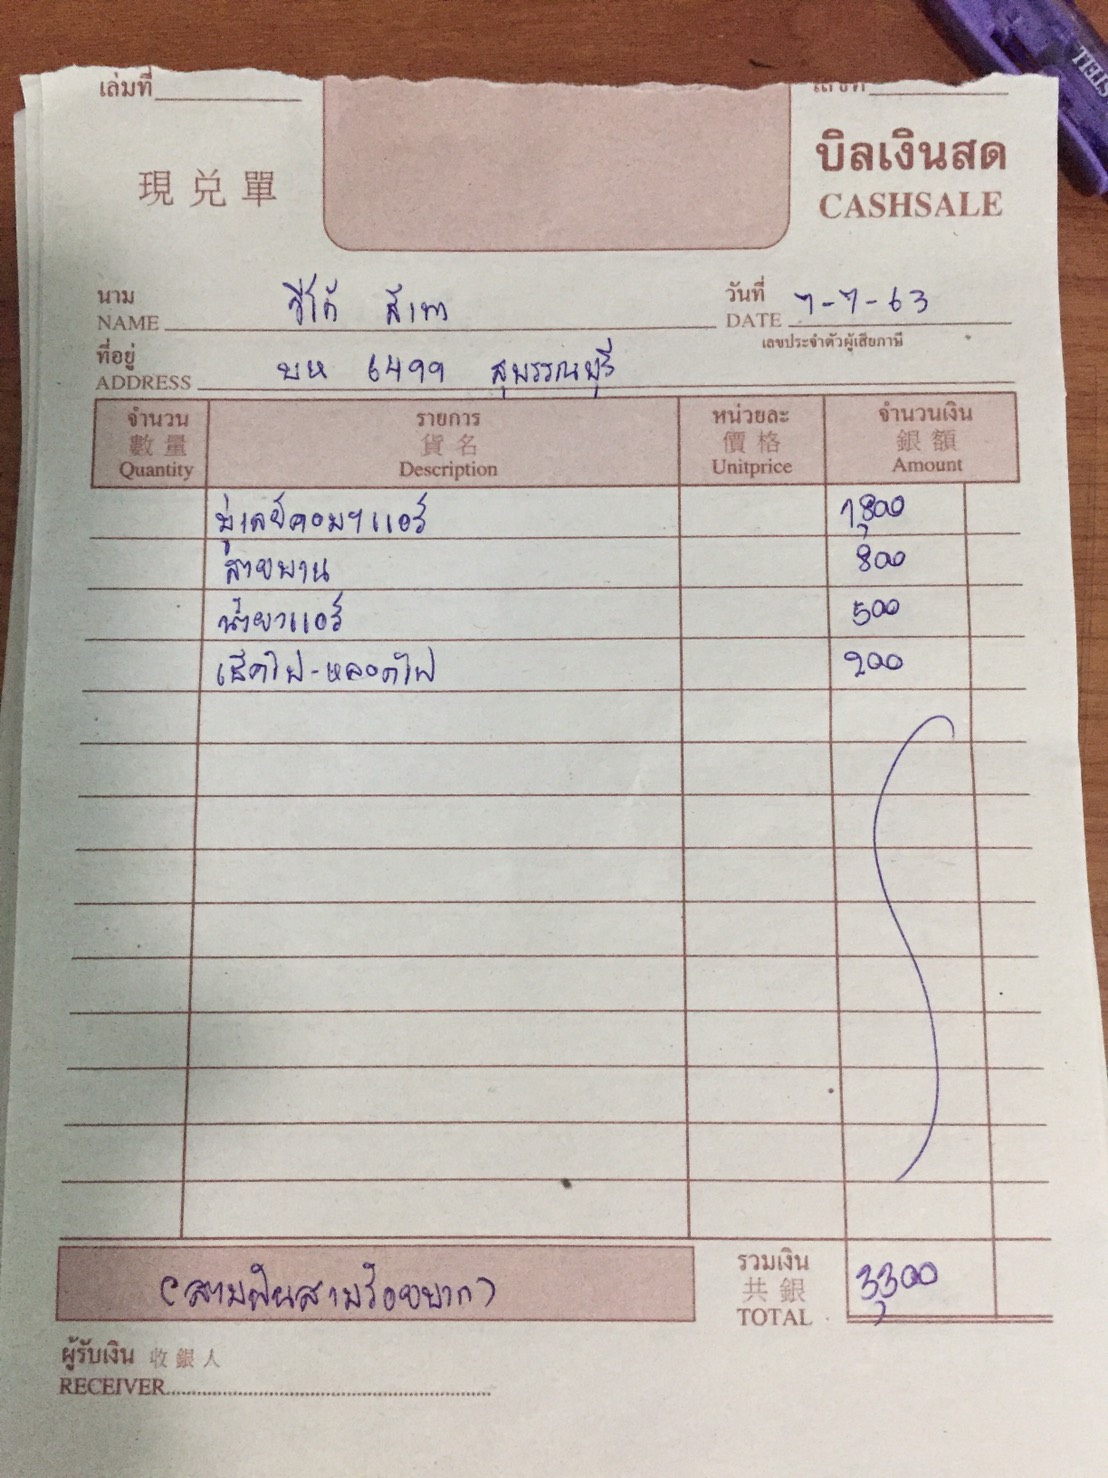 เล่มที่
現兌單
บิลเงินสด
CASHSALE
STELL
นาม
NAME
วีโก้ สีเทา
วันที่
DATE
7-7-63
เลขประจำตัวผู้เสียภาษี
ที่อยู่
ADDRESS
บห 6499 สุพรรณบุรี
จำนวน รายการ หน่วยละ จำนวนเงิน
數量 貨名 價格 銀額
Quantity Description Unitprice Amount
มู่เลย์คอมฯแอร์ 1,800
สายพาน 800
น้ำยาแอร์ 500
เช็คไฟ-หลอดไฟ 200
(สามพันสามร้อยบาท)
รวมเงิน
共銀
TOTAL
3,300
ผู้รับเงิน 收銀人
RECEIVER